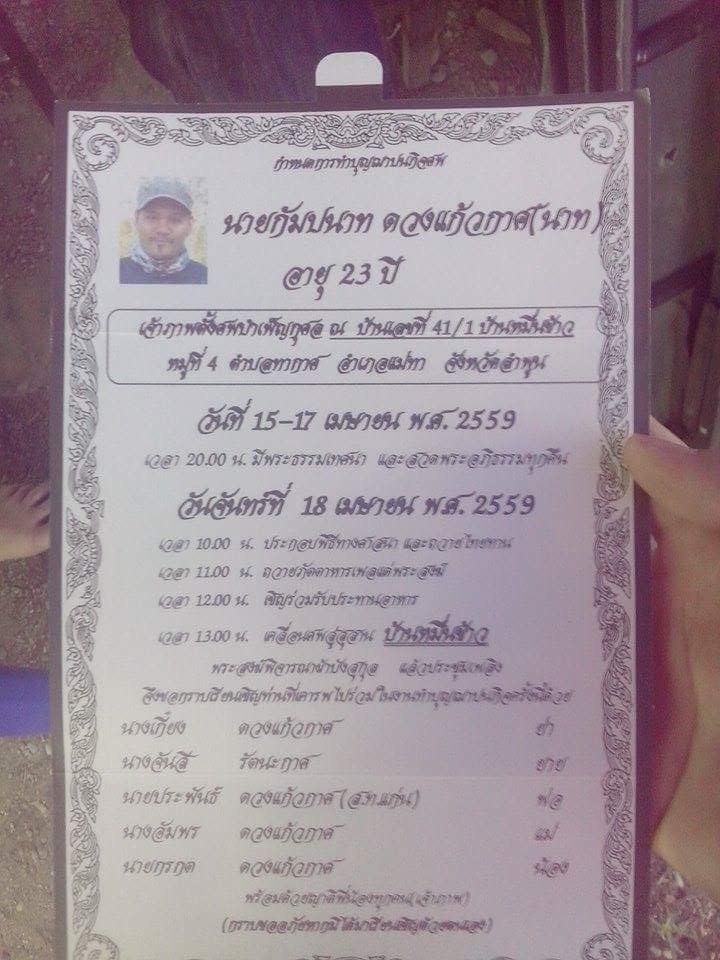 กำหนดการทำบุญฌาปนกิจศพ
นายกัมปนาท ดวงแก้วกาศ(นาท)
อายุ 23 ปี
เจ้าภาพตั้งศพบำเพ็ญกุศล ณ บ้านเลขที่ 41/1 บ้านหมื่นข้าว
หมู่ที่ 4 ตำบลทากาศ อำเภอแม่ทา จังหวัดลำพูน
วันที่ 15-17 เมษายน พ.ศ. 2559
เวลา 20.00 น. มีพระธรรมเทศนา และสวดพระอภิธรรมทุกคืน
วันจันทร์ที่ 18 เมษายน พ.ศ. 2559
เวลา 10.00 น. ประกอบพิธีทางศาสนา และถวายไทยทาน
เวลา 11.00 น. ถวายภัตตาหารเพลแด่พระสงฆ์
เวลา 12.00 น. เชิญร่วมรับประทานอาหาร
เวลา 13.00 น. เคลื่อนศพสู่สุสาน บ้านหมื่นข้าว
พระสงฆ์พิจารณาผ้าบังสุกุล แล้วประชุมเพลิง
จึงขอกราบเรียนเชิญท่านที่เคารพไปร่วมในงานทำบุญฌาปนกิจครั้งนี้ด้วย
นางเกี๋ยง ดวงแก้วกาศ ย่า
นางจันสี รัตนะกาศ ยาย
นายประพันธ์ ดวงแก้วกาศ (ส.ท.แก่น) พ่อ
นางอัมพร ดวงแก้วกาศ แม่
นายกรกต ดวงแก้วกาศ น้อง
พร้อมด้วยญาติพี่น้องทุกคน(เจ้าภาพ)
(กราบขออภัยหากมิได้มาเรียนเชิญด้วยตนเอง)